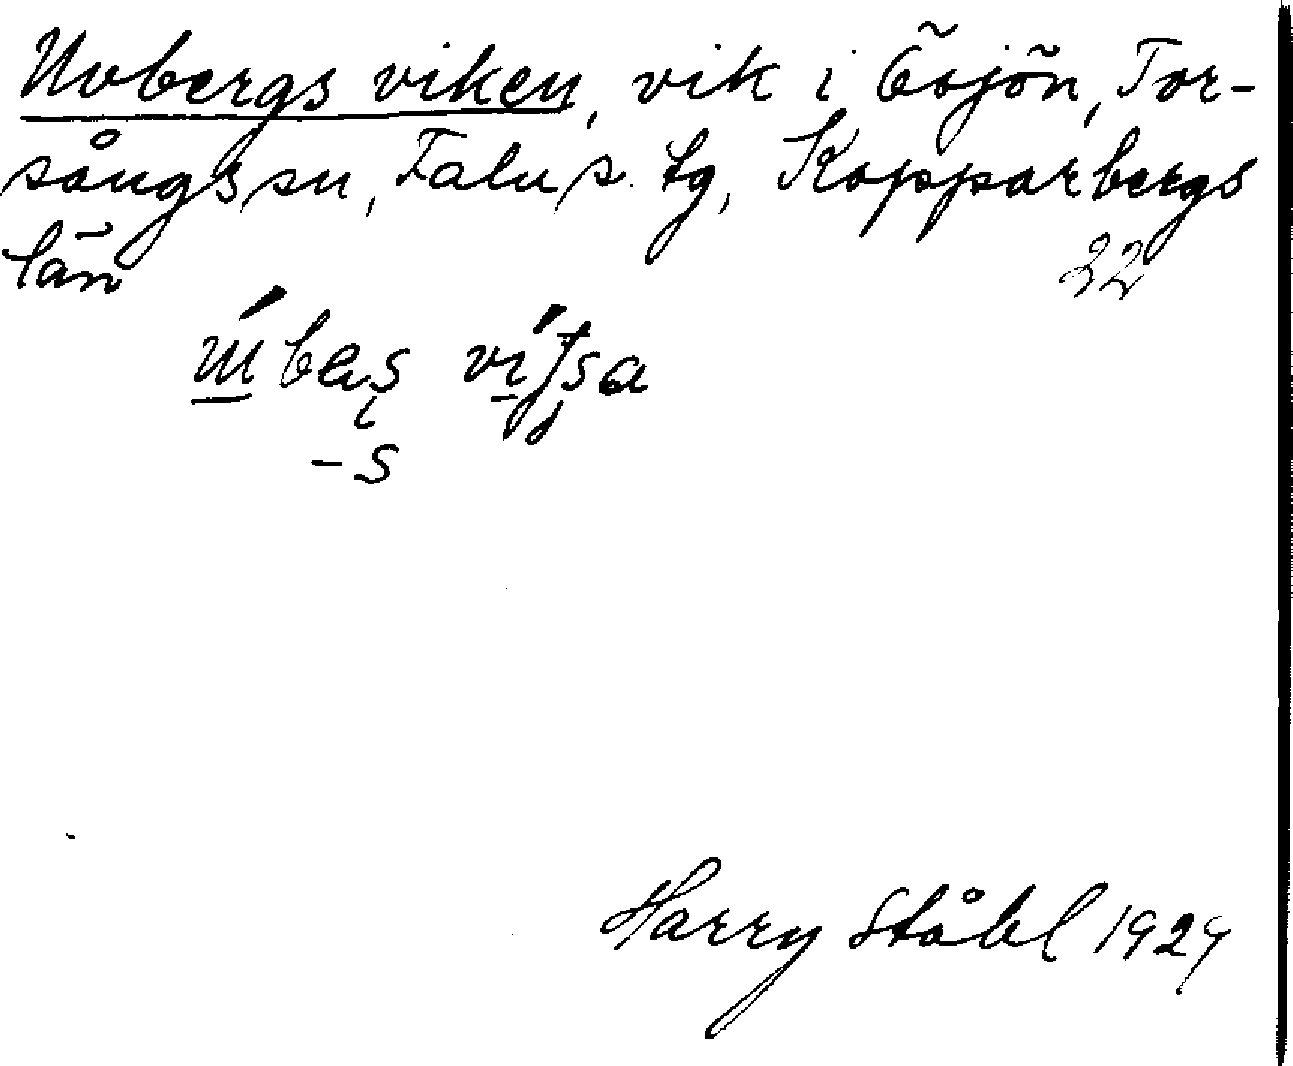 Uvbergsviken, vik i Ösjön, Tor-
sångs sn, Falu s. tg, Kopparbergs
län
22
-s
Harry Ståhl 1929